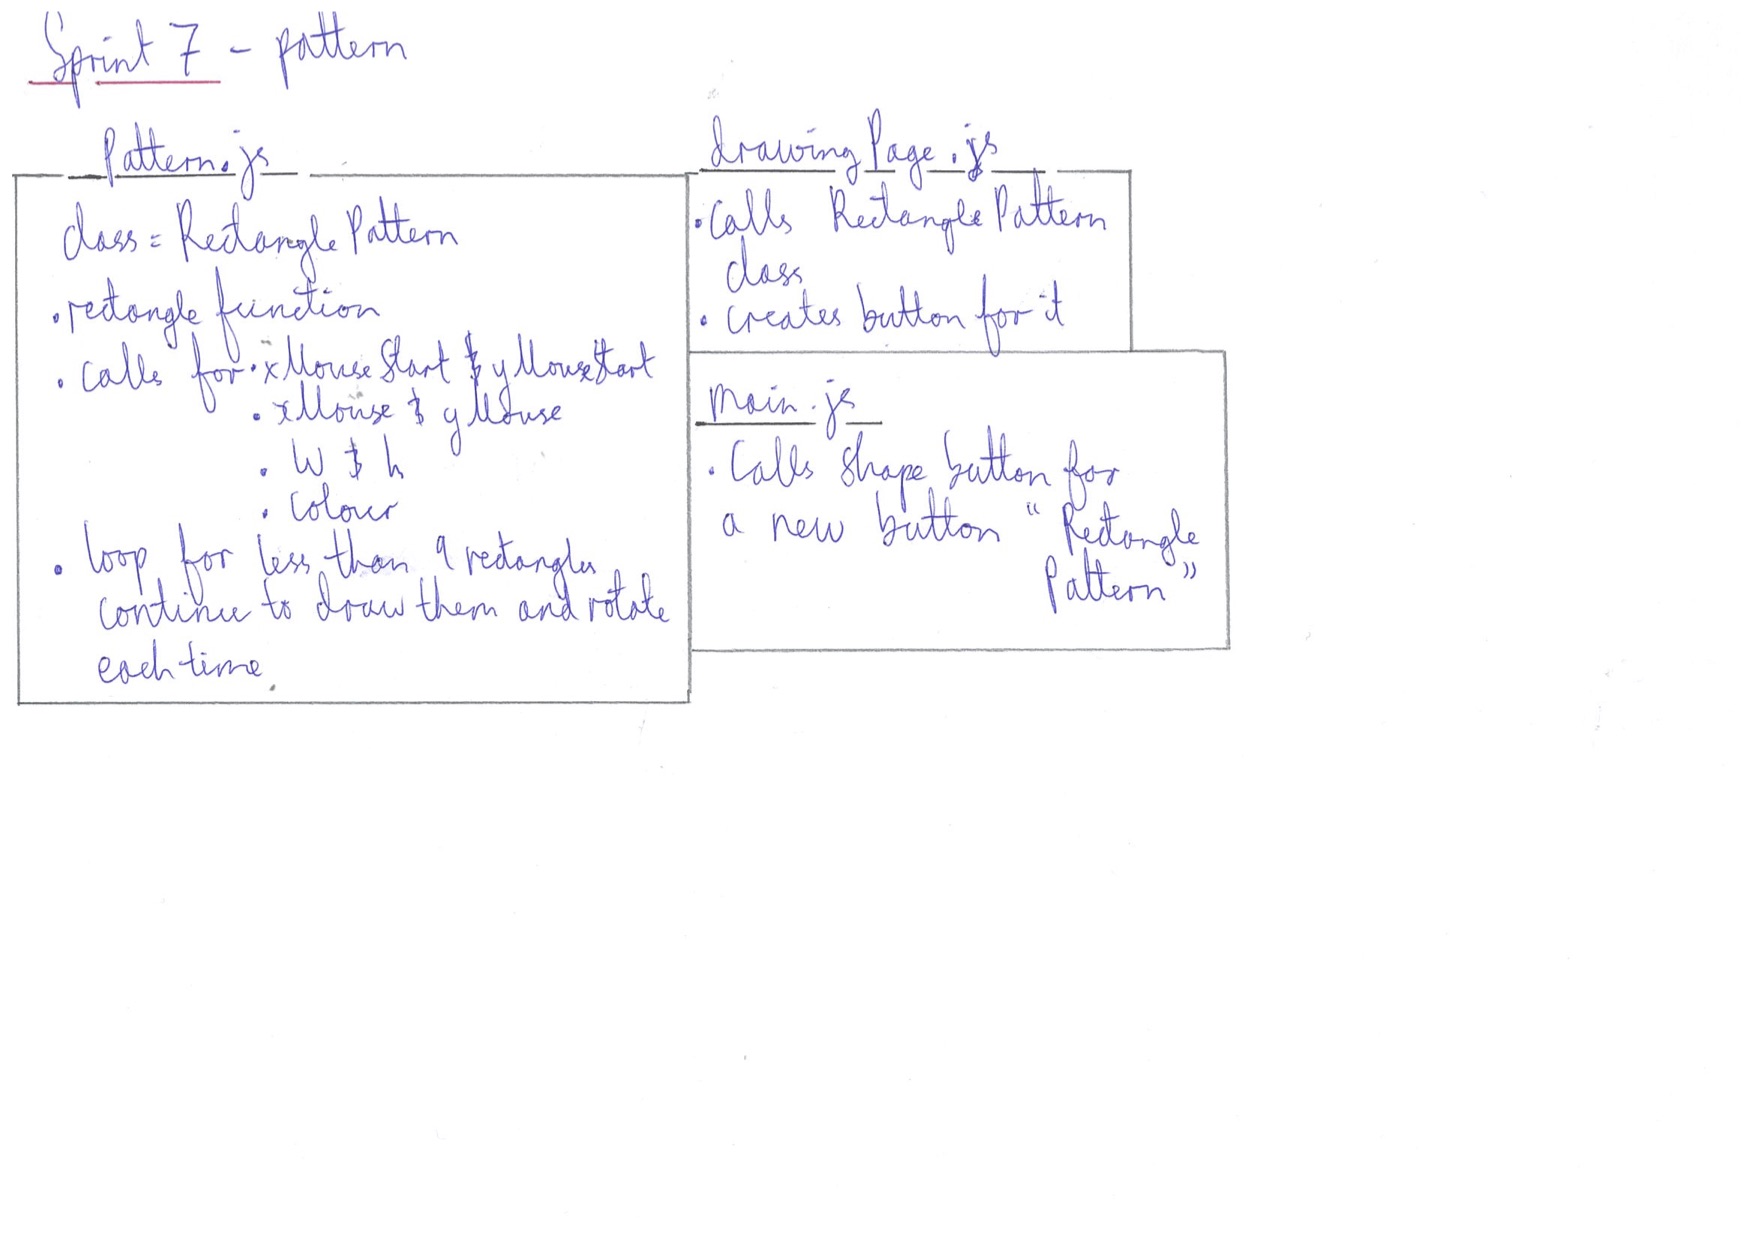 Sprint 7 - pattern
Pattern.js
class = Rectangle Pattern
• rectangle function
• calls for • xMouseStart & yMouseStart
• xMouse & yMouse
• W & h
• colour
• loop for less than 9 rectangles
continue to draw them and rotate
each time.
drawingPage.js
• calls RectanglePattern
class
• creates button for it
main.js
• Calls shape button for
a new button "Rectangle
Pattern"